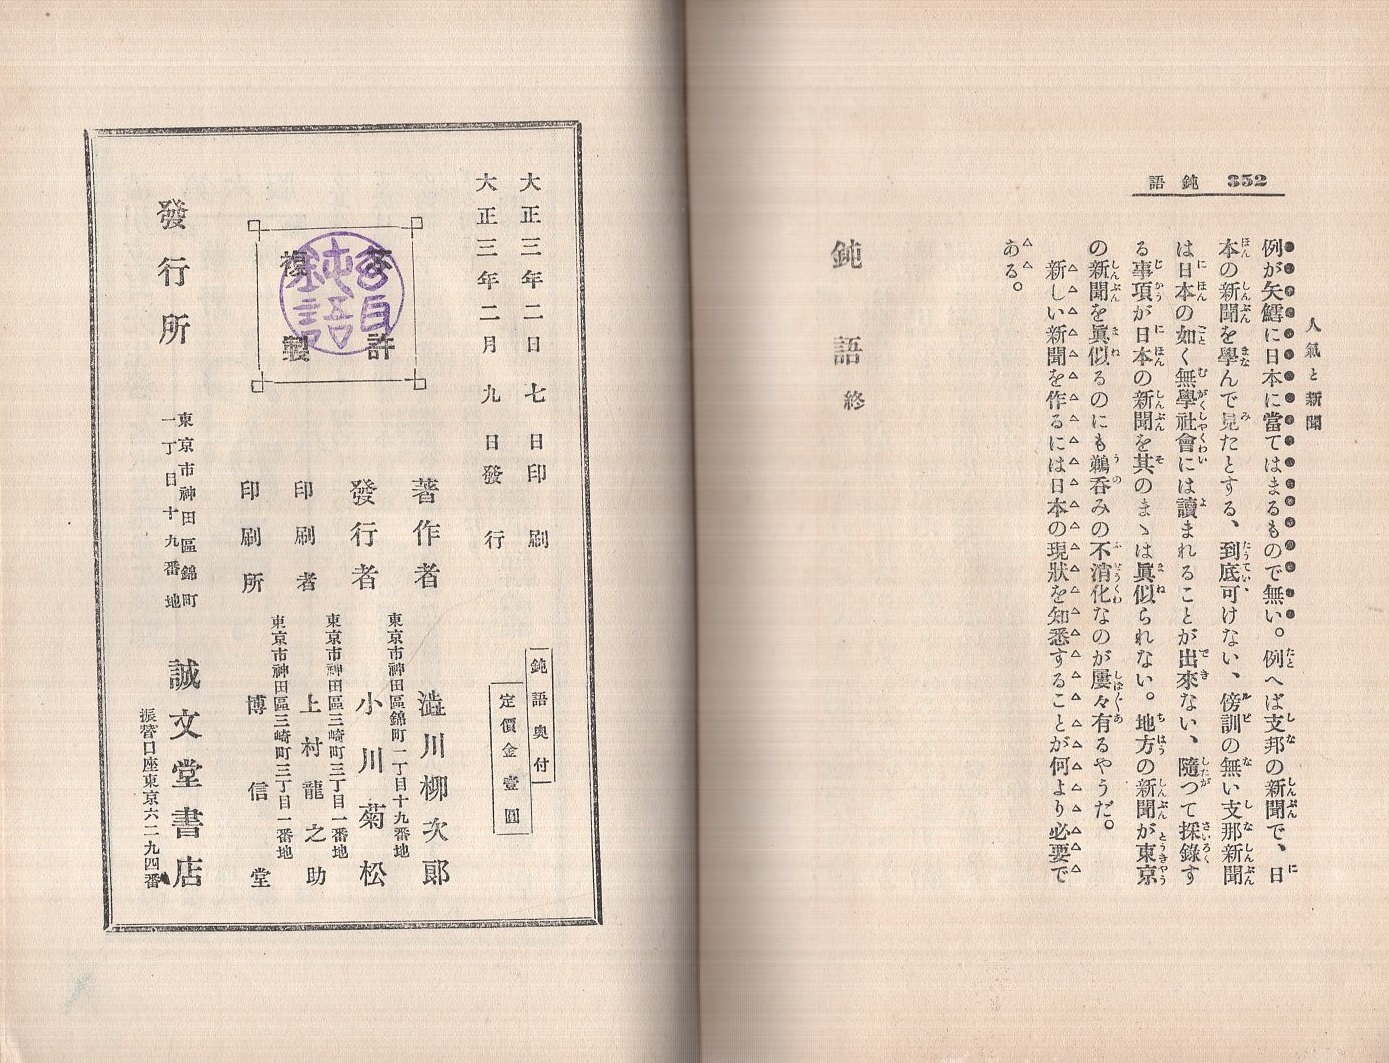 352 鈍語
人氣と新聞
例が矢鱈に日本に當てはまるもので無い。例へば支邦の新聞で、日
本の新聞を學んで見たとする、到底可けない、傍訓の無い支那新聞
は日本の如く無學社會には讀まれることが出來ない、隨つて採錄す
る事項が日本の新聞を其のまゝは眞似られない。地方の新聞が東京
の新聞を眞似るのにも鵜呑みの不消化なのが屢々有るやうだ。
新しい新聞を作るには日本の現狀を知悉することが何より必要で
ある。
鈍語終
大正三年二日七日印刷
大正三年二月九日發行
鈍語奥付
定價金壹圓
不許
複製
鈍語
著作者 澁川柳次郎
東京市神田區錦町一丁目十九番地
發行者 小川菊松
東京市神田區三崎町三丁目一番地
印刷者 上村龍之助
東京市神田區三崎町三丁目一番地
印刷所 博信堂
發行所
東京市神田區錦町
一丁目十九番地
誠文堂書店
振替口座東京六二九四番